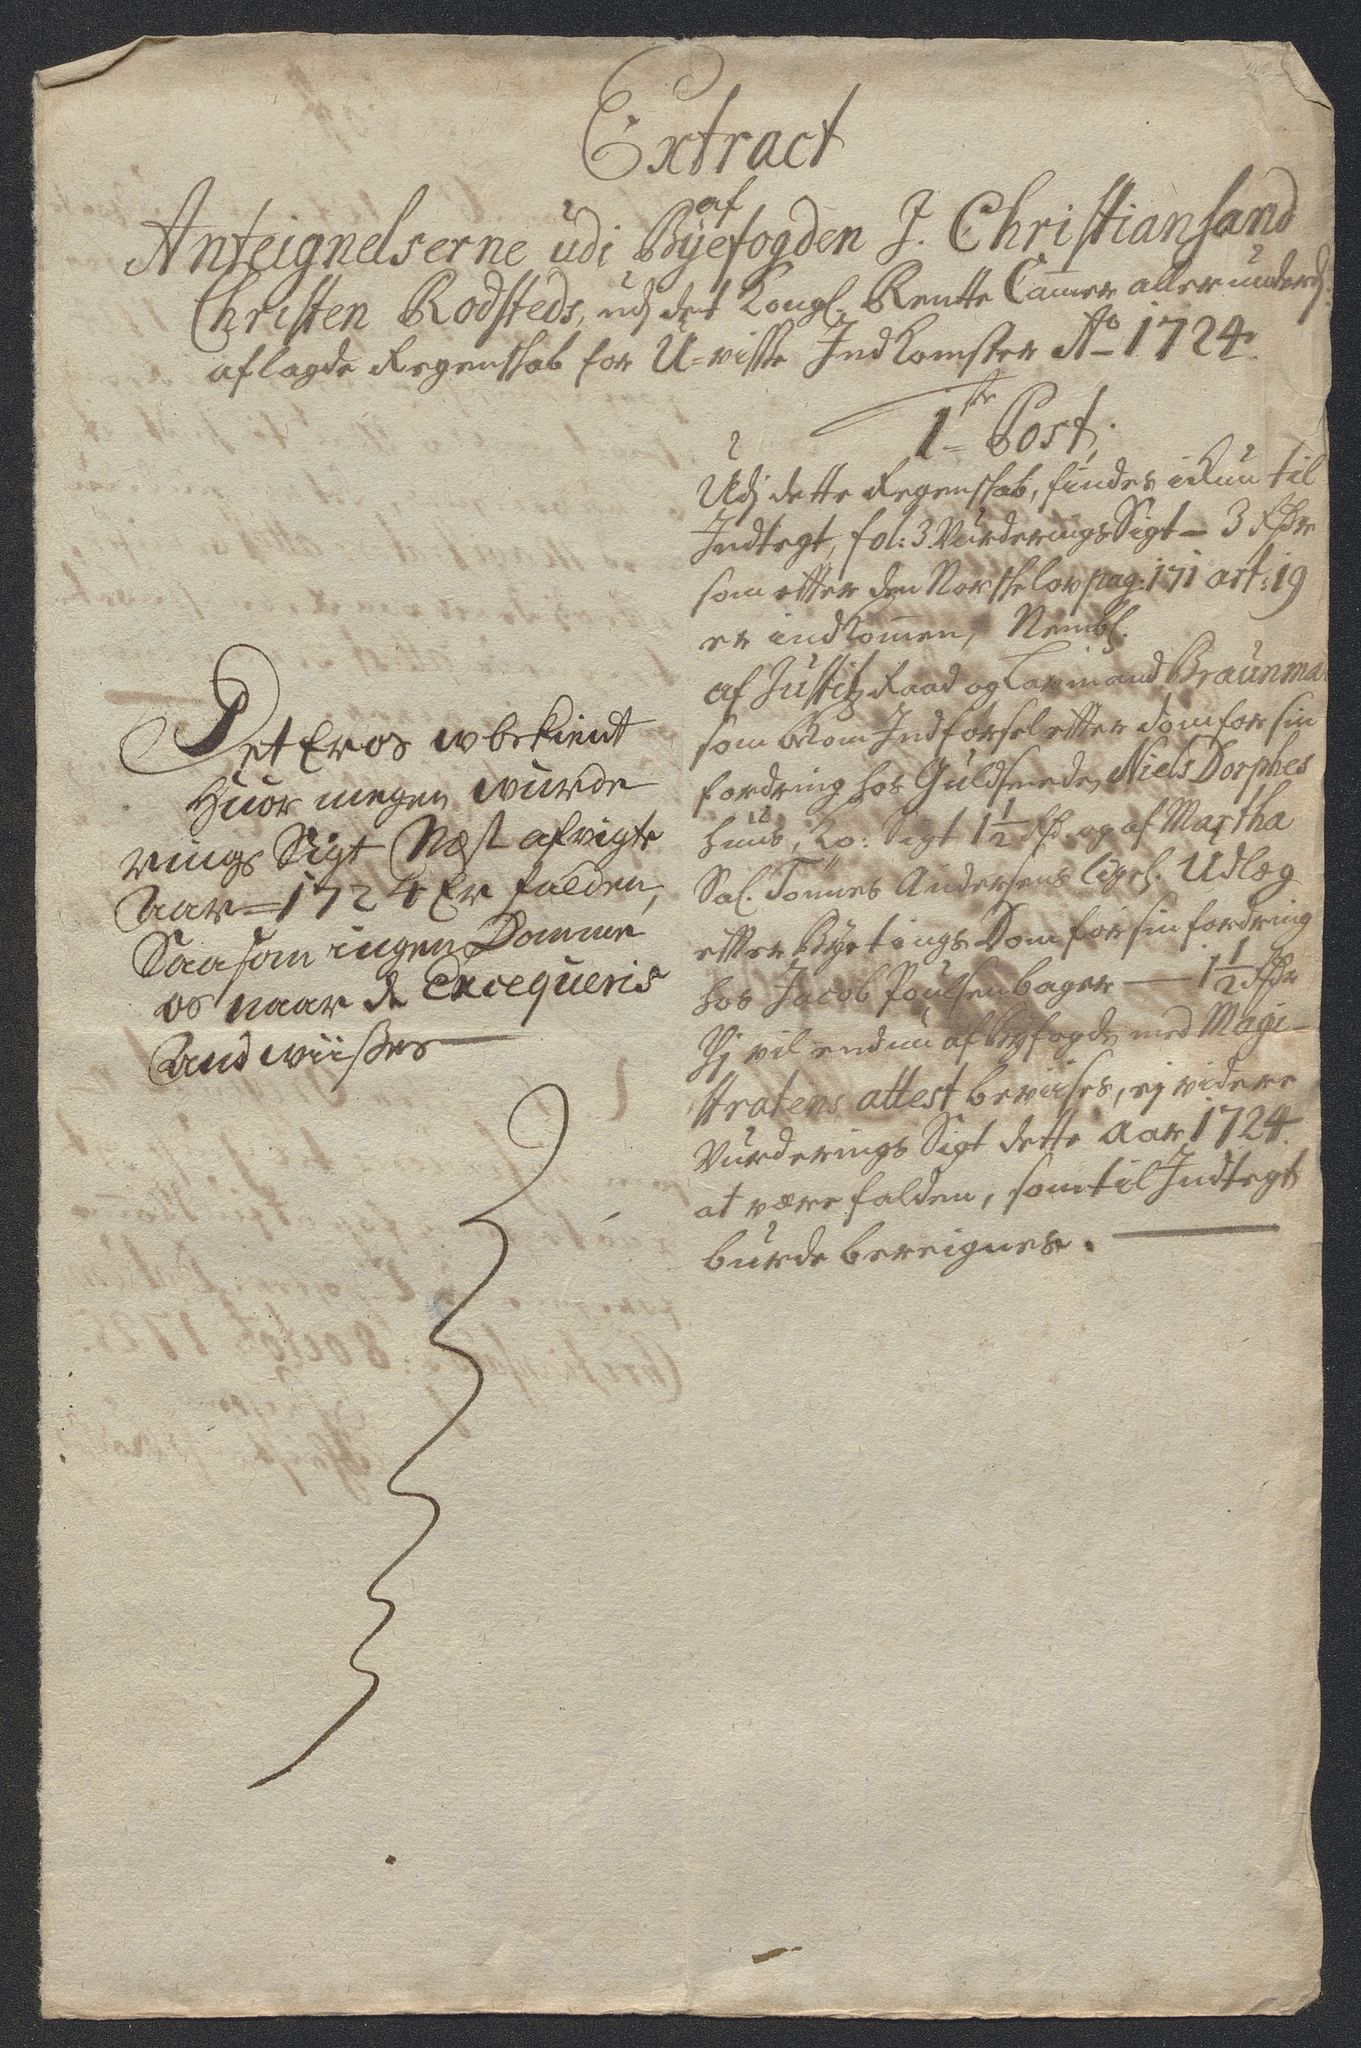 Extract
af
Anteignelserne udi Byefogden J. Christiansand
Christen Rodsteds, udj det Kongl. Rentte Cammer allerunderd:
aflagde Regenskab for U-visse Jndkomster Ao 1724.
1ste Post,
Udj dette Regenskab, findes ikun til
Jndtegt, fol: 3 Vurderings Sigt – 3 Rdr
som efter den Norske lov pag: 171 art: 19
er indkommen, Nembl.
af Justitz Raad og Laumand Braunma
som bekom Jndførsel efter dom for sin
fordring hos Guldsmeden Niels Dorphes
huus, Ko: Sigt 1½ Rd. og af Martha
Sal. Tönnes Andersens ligel. Udlæg
efter Byetings Dom for sin fordring
hos Jacob Poulsen bager — 1½ Rdr
Hj vil endnu af byfogden med Magi-
stratens attest beviises, ej videre
Vurderings Sigt dette Aar 1724.
at være falden, som til Jndtegt
burde bereignes.
Det Er os wbekient
Huor megen wurde
rings Sigt Næst afvigte
Aar – 1724 Er falden,
Saasom ingen Domme
os naar de Exceqveris
Andwiises